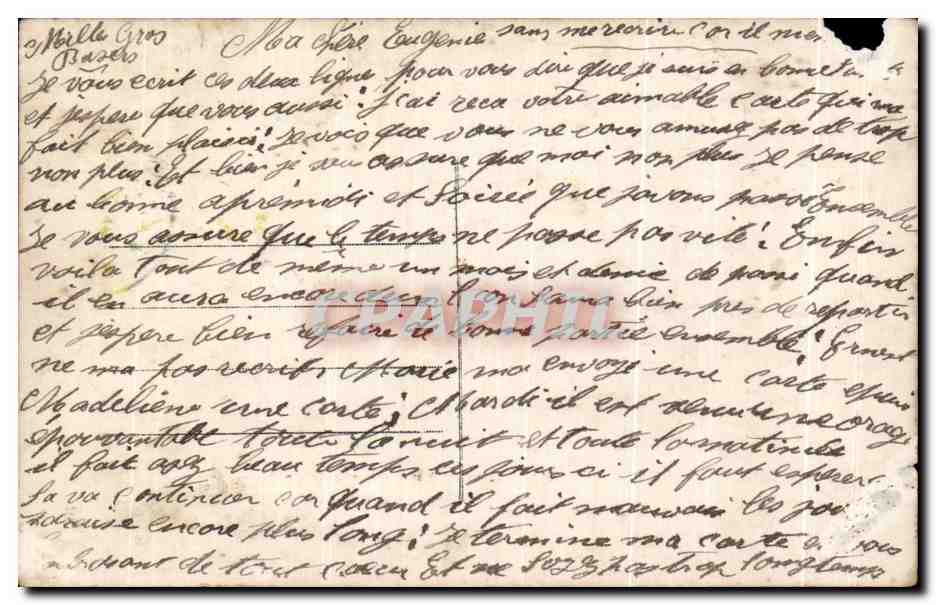 Mille Gros
Basers
Ma chere Eugenie sans mecrire car il me
Je vous ecrit ces deux lignes pour vous dire que je suis en bonne
et jespere que vous aussi! J'ai recu votre aimable carte qui ma
fait bien plaisir! Je vois que vous ne vous amusez pas de trop
non plus! Et bien je vous assure que moi non plus je pense
au bonne aprémidi et Soirée que javons passé ensemble
Je vous assure que le temps ne passe pas vite! Enfin
voila tout de meme un mois et demie de passé quand
il en aura encore deux lon sera bien pres de repartir
et jespere bien refaire de bonne partie ensemble! Ernest
ne ma pas recrit Marie ma envoyé une carte epuis
Madeliene une carte; Mardi il est venu une orage
epouvantable toute la nuit et toute la matinée
il fait assez beau temps ces jours ci il faut esperer
Sa va continuer car quand il fait mauvais les jou
encore plus long! Je termine ma carte en vous
de tout coeur Et ne Soyez pas trop longtemps
CPAPHIL